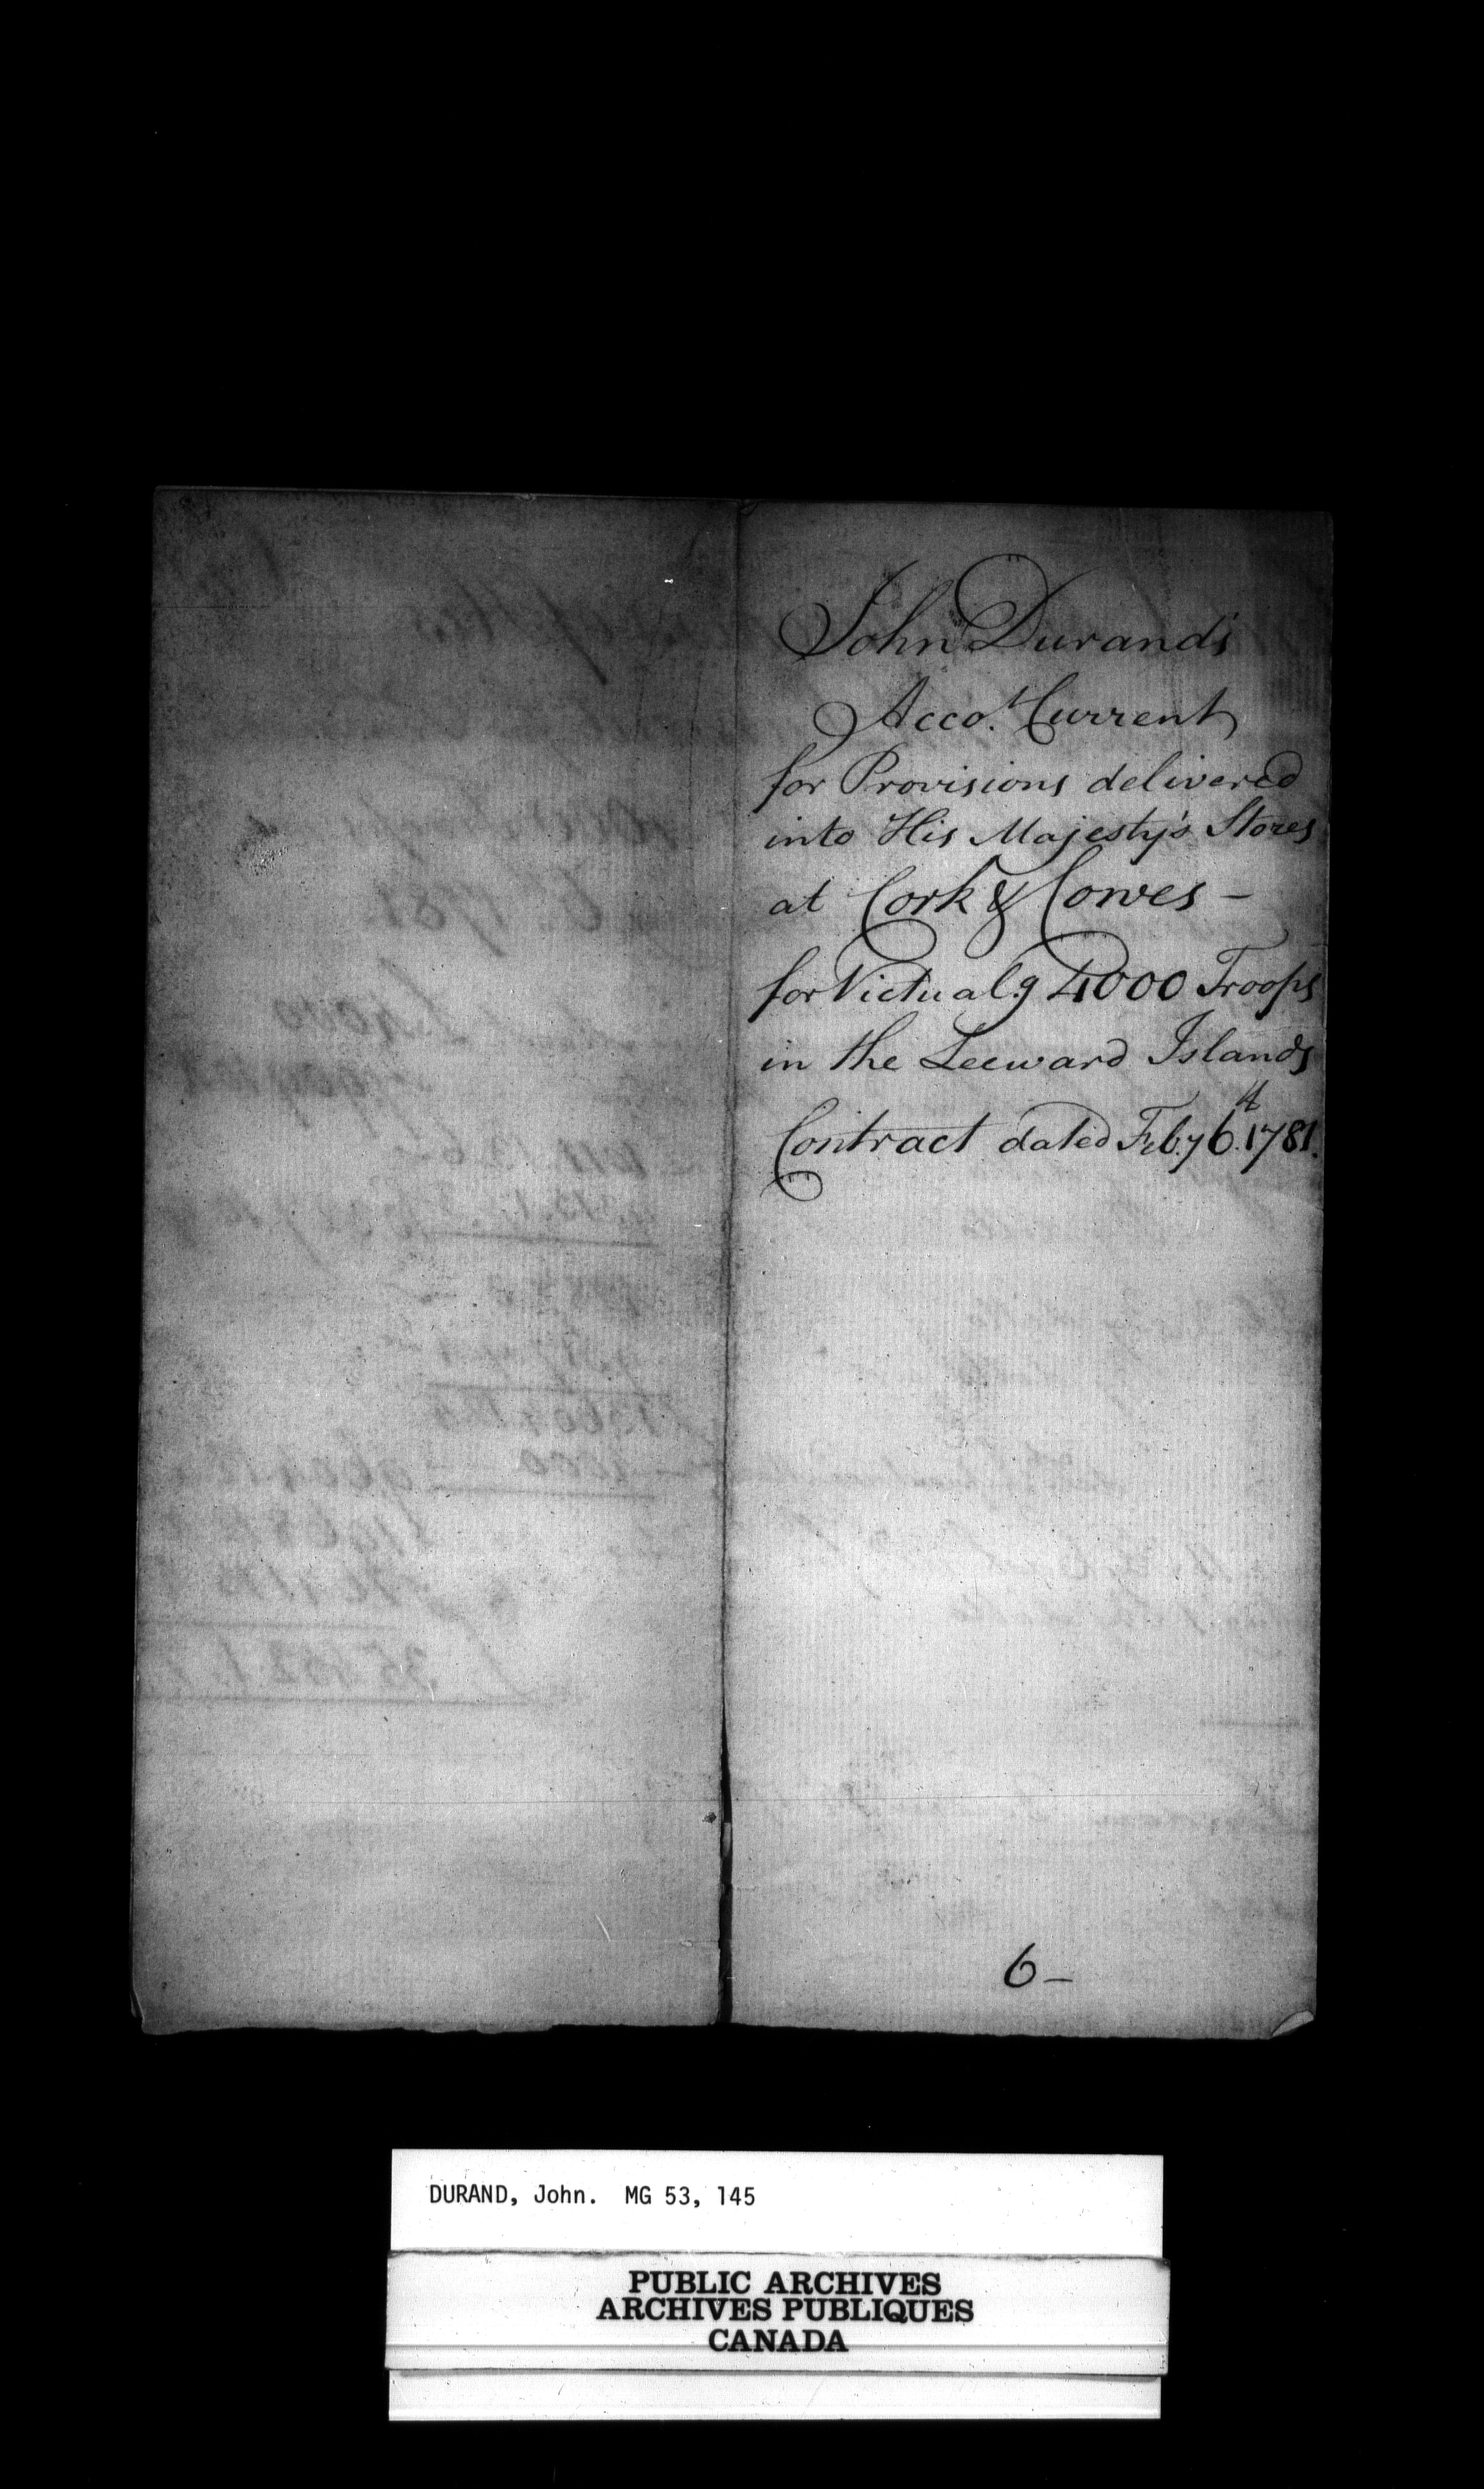 John Durand's
Acco.t Current
for Provisions delivered
into His Majesty's Stores
at Cork & Cowes -
for Victual.g 4000 Troops
in the Leeward Islands
Contract dated Feb.y 6.th 1781.
6-
DURAND, John. MG 53, 145
PUBLIC ARCHIVES
ARCHIVES PUBLIQUES
CANADA